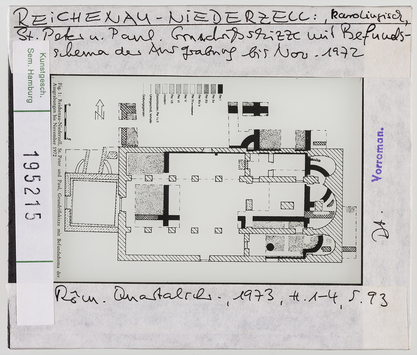 REICHENAU-NIEDERZELL:, karolingisch,
St. Peter u. Paul. Grundrißskizze mit Befund-
schema der Ausgrabung bis Nov. 1972
Kunstgesch.
Sem. Hamburg
195215
Fig. 1: Reichenau-Niederzell, St. Peter und Paul, Grundrißskizze mit Befundschema der
Ausgrabungen bis November 1972
Vorroman.
Dt.
Röm. Quartalschr., 1973, H. 1-4, S. 93